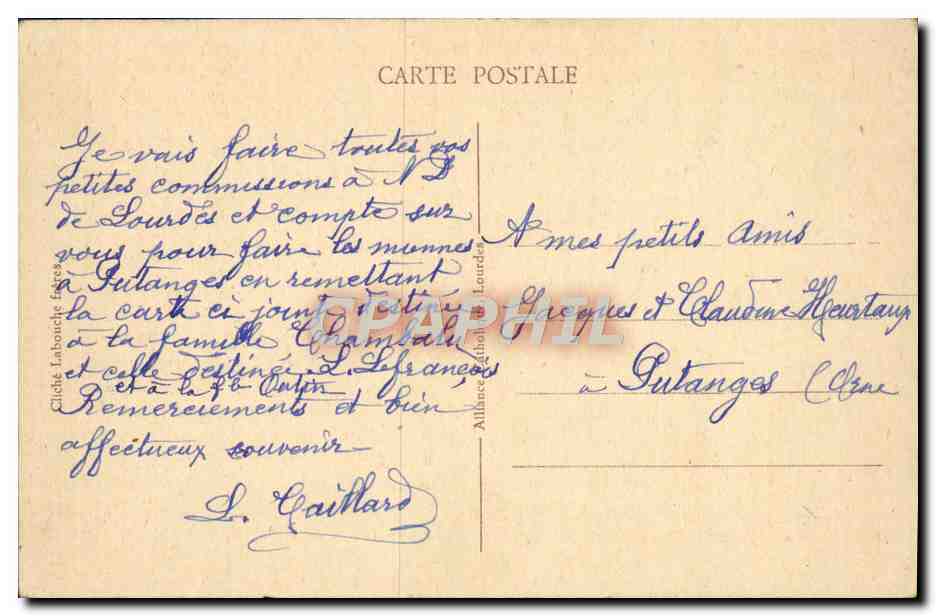 CARTE POSTALE
Je vais faire toutes vos
petites commissions à N D
de Lourdes et compte sur
vous pour faire les miennes
à Putanges en remettant
la carte ci joint destinée
à la famille
et celle destinée L. Lefrançois
et à la
Remerciements et bien
affectueux souvenir
L. Taillard
A mes petits amis
Jacques et Claudine Heurtaux
à Putanges (Orne
Cliché Labouche frères
Alliance Catholique Lourdes
CPAPHIL